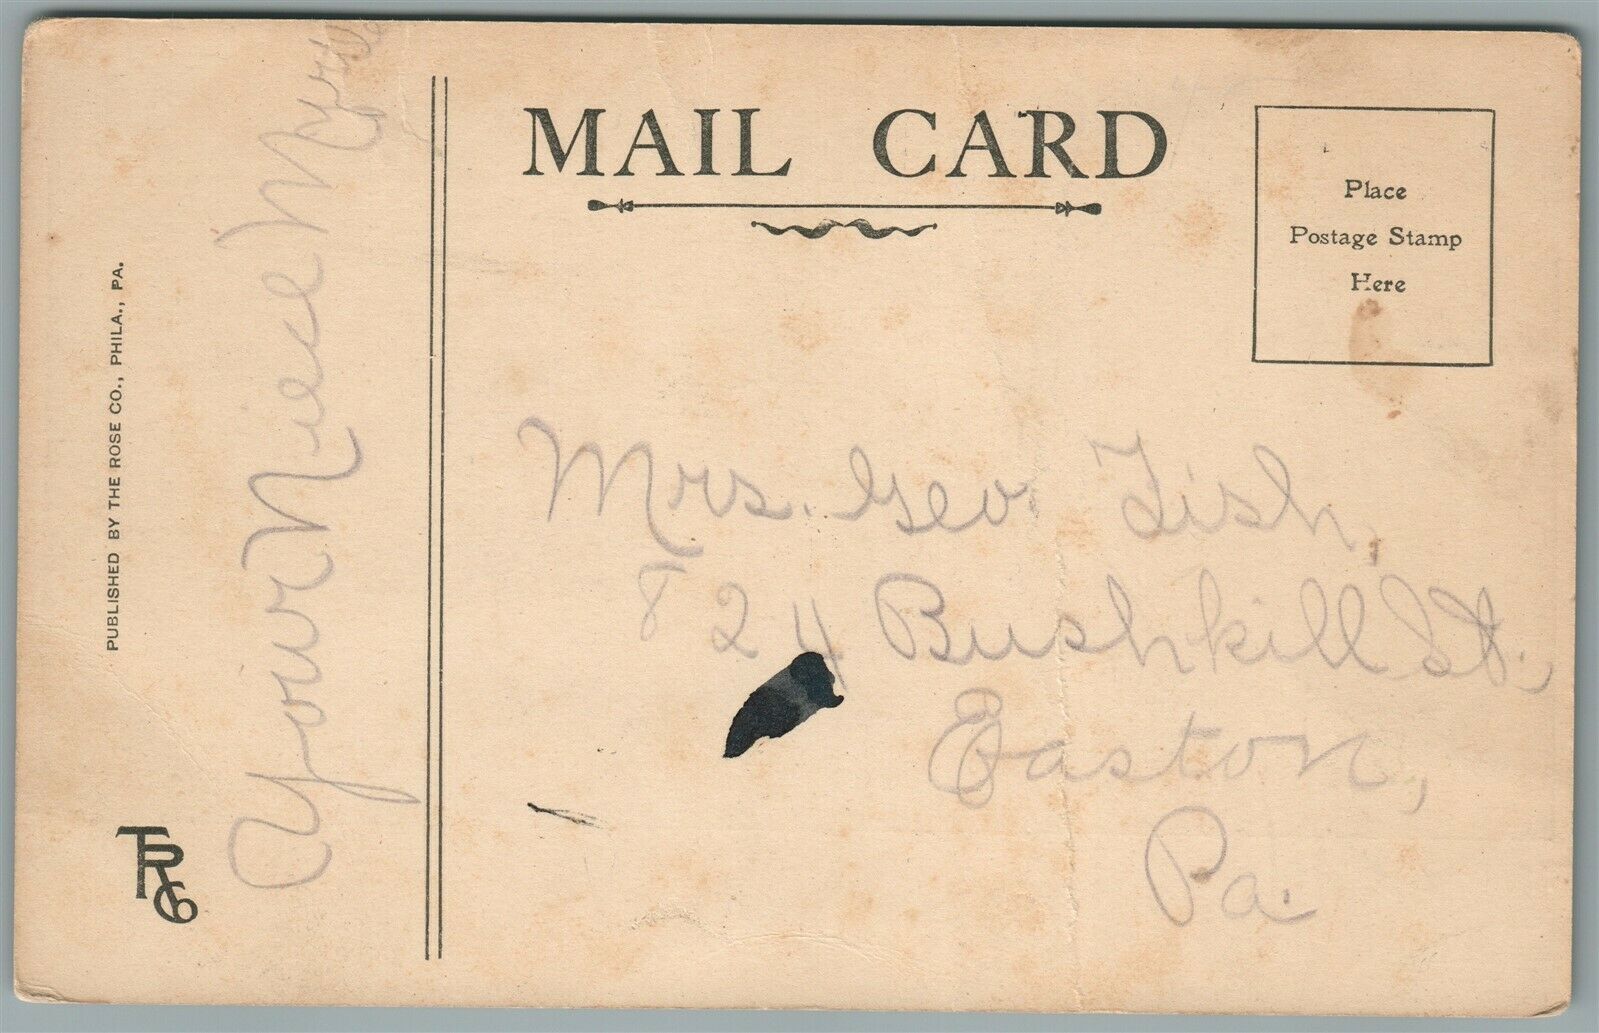 MAIL CARD
Place
Postage Stamp
Here
PUBLISHED BY THE ROSE CO., PHILA., PA.
TRCo
Your Niece
Mrs. Geo. Fish,
824 Bushkill St.,
Easton,
Pa.